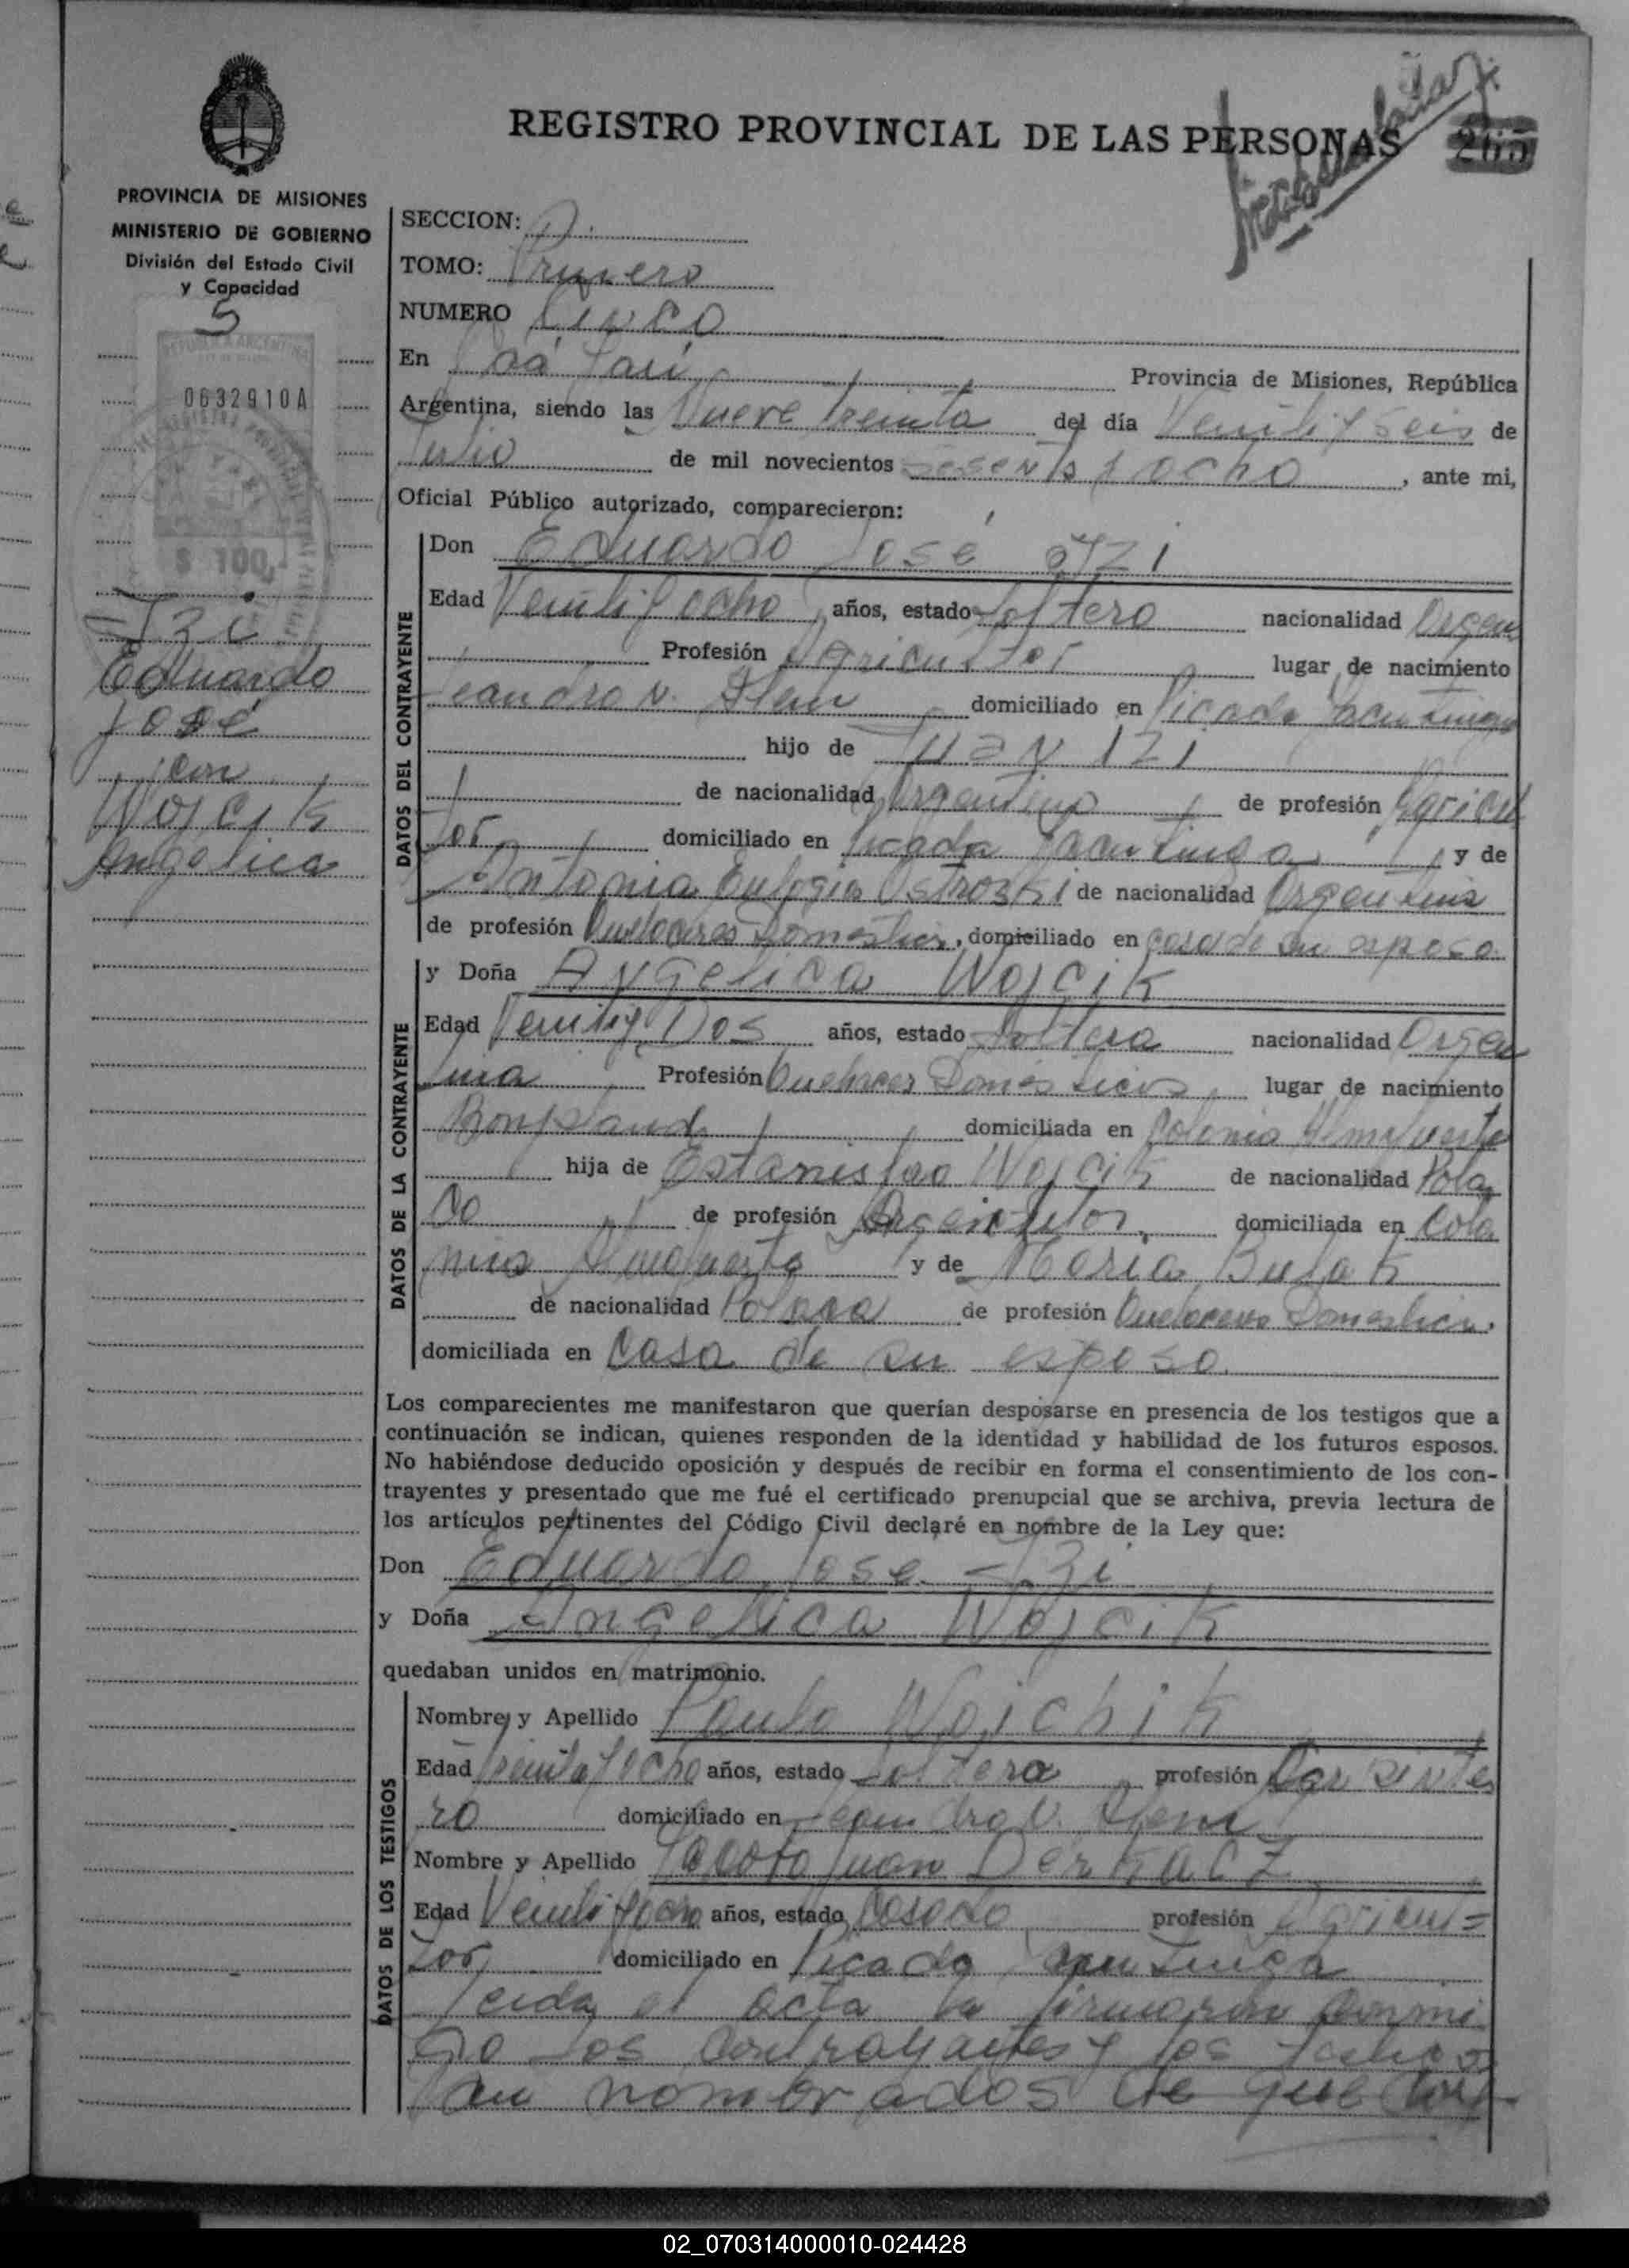 REGISTRO PROVINCIAL DE LAS PERSONAS
265
PROVINCIA DE MISIONES
MINISTERIO DE GOBIERNO
División del Estado Civil
y Capacidad
5
REPUBLICA ARGENTINA
0632910A
$ 100
Izi
Eduardo
José
con
Wojcik
Angelica
SECCION:
TOMO: Primero
NUMERO Cinco
En Caá Yarí Provincia de Misiones, República
Argentina, siendo las Nueve treinta del día Veinti y seis de
Julio de mil novecientos sesenta y ocho, ante mi,
Oficial Público autorizado, comparecieron:
DATOS DEL CONTRAYENTE
Don Eduardo José IZI
Edad Veinti y ocho años, estado soltero nacionalidad Argen
Profesión Agricultor lugar de nacimiento
Leandro N. Alem domiciliado en Picada Yacutinga
hijo de Juan IZI
de nacionalidad Argentino de profesión Agricul
tor domiciliado en Picada Yacutinga y de
Antonia Eulogia Ostrozki de nacionalidad Argentina
de profesión Quehaceres Domestico, domiciliado en casa de su esposo
DATOS DE LA CONTRAYENTE
y Doña Angelica Wojcik
Edad Veinti y Dos años, estado soltera nacionalidad Argen
tina Profesión Quehacer Domesticos lugar de nacimiento
Bonpland domiciliada en Colonia Almafuerte
hija de Estanislao Wojcik de nacionalidad Pola
co de profesión Agricultor domiciliada en Colo
nia Almafuerte y de Maria Bulak
de nacionalidad Polaca de profesión Quehaceres Domestico.
domiciliada en Casa de su esposo
Los comparecientes me manifestaron que querían desposarse en presencia de los testigos que a
continuación se indican, quienes responden de la identidad y habilidad de los futuros esposos.
No habiéndose deducido oposición y después de recibir en forma el consentimiento de los con-
trayentes y presentado que me fué el certificado prenupcial que se archiva, previa lectura de
los artículos pertinentes del Código Civil declaré en nombre de la Ley que:
Don Eduardo Jose Izi
y Doña Angelica Wojcik
quedaban unidos en matrimonio.
DATOS DE LOS TESTIGOS
Nombre y Apellido Paulo Wojchik
Edad Treinta y ocho años, estado soltera profesión Carpinte
ro domiciliado en Leandro N. Alem
Nombre y Apellido Jacobo Juan Derkacz
Edad Veinti y ocho años, estado Casado profesión Agricul=
tor domiciliado en Picada Yacutinga
Leida el acta la firmaron conmi
go los contrayantes y los testigos
nombrados de que
02_070314000010-024428